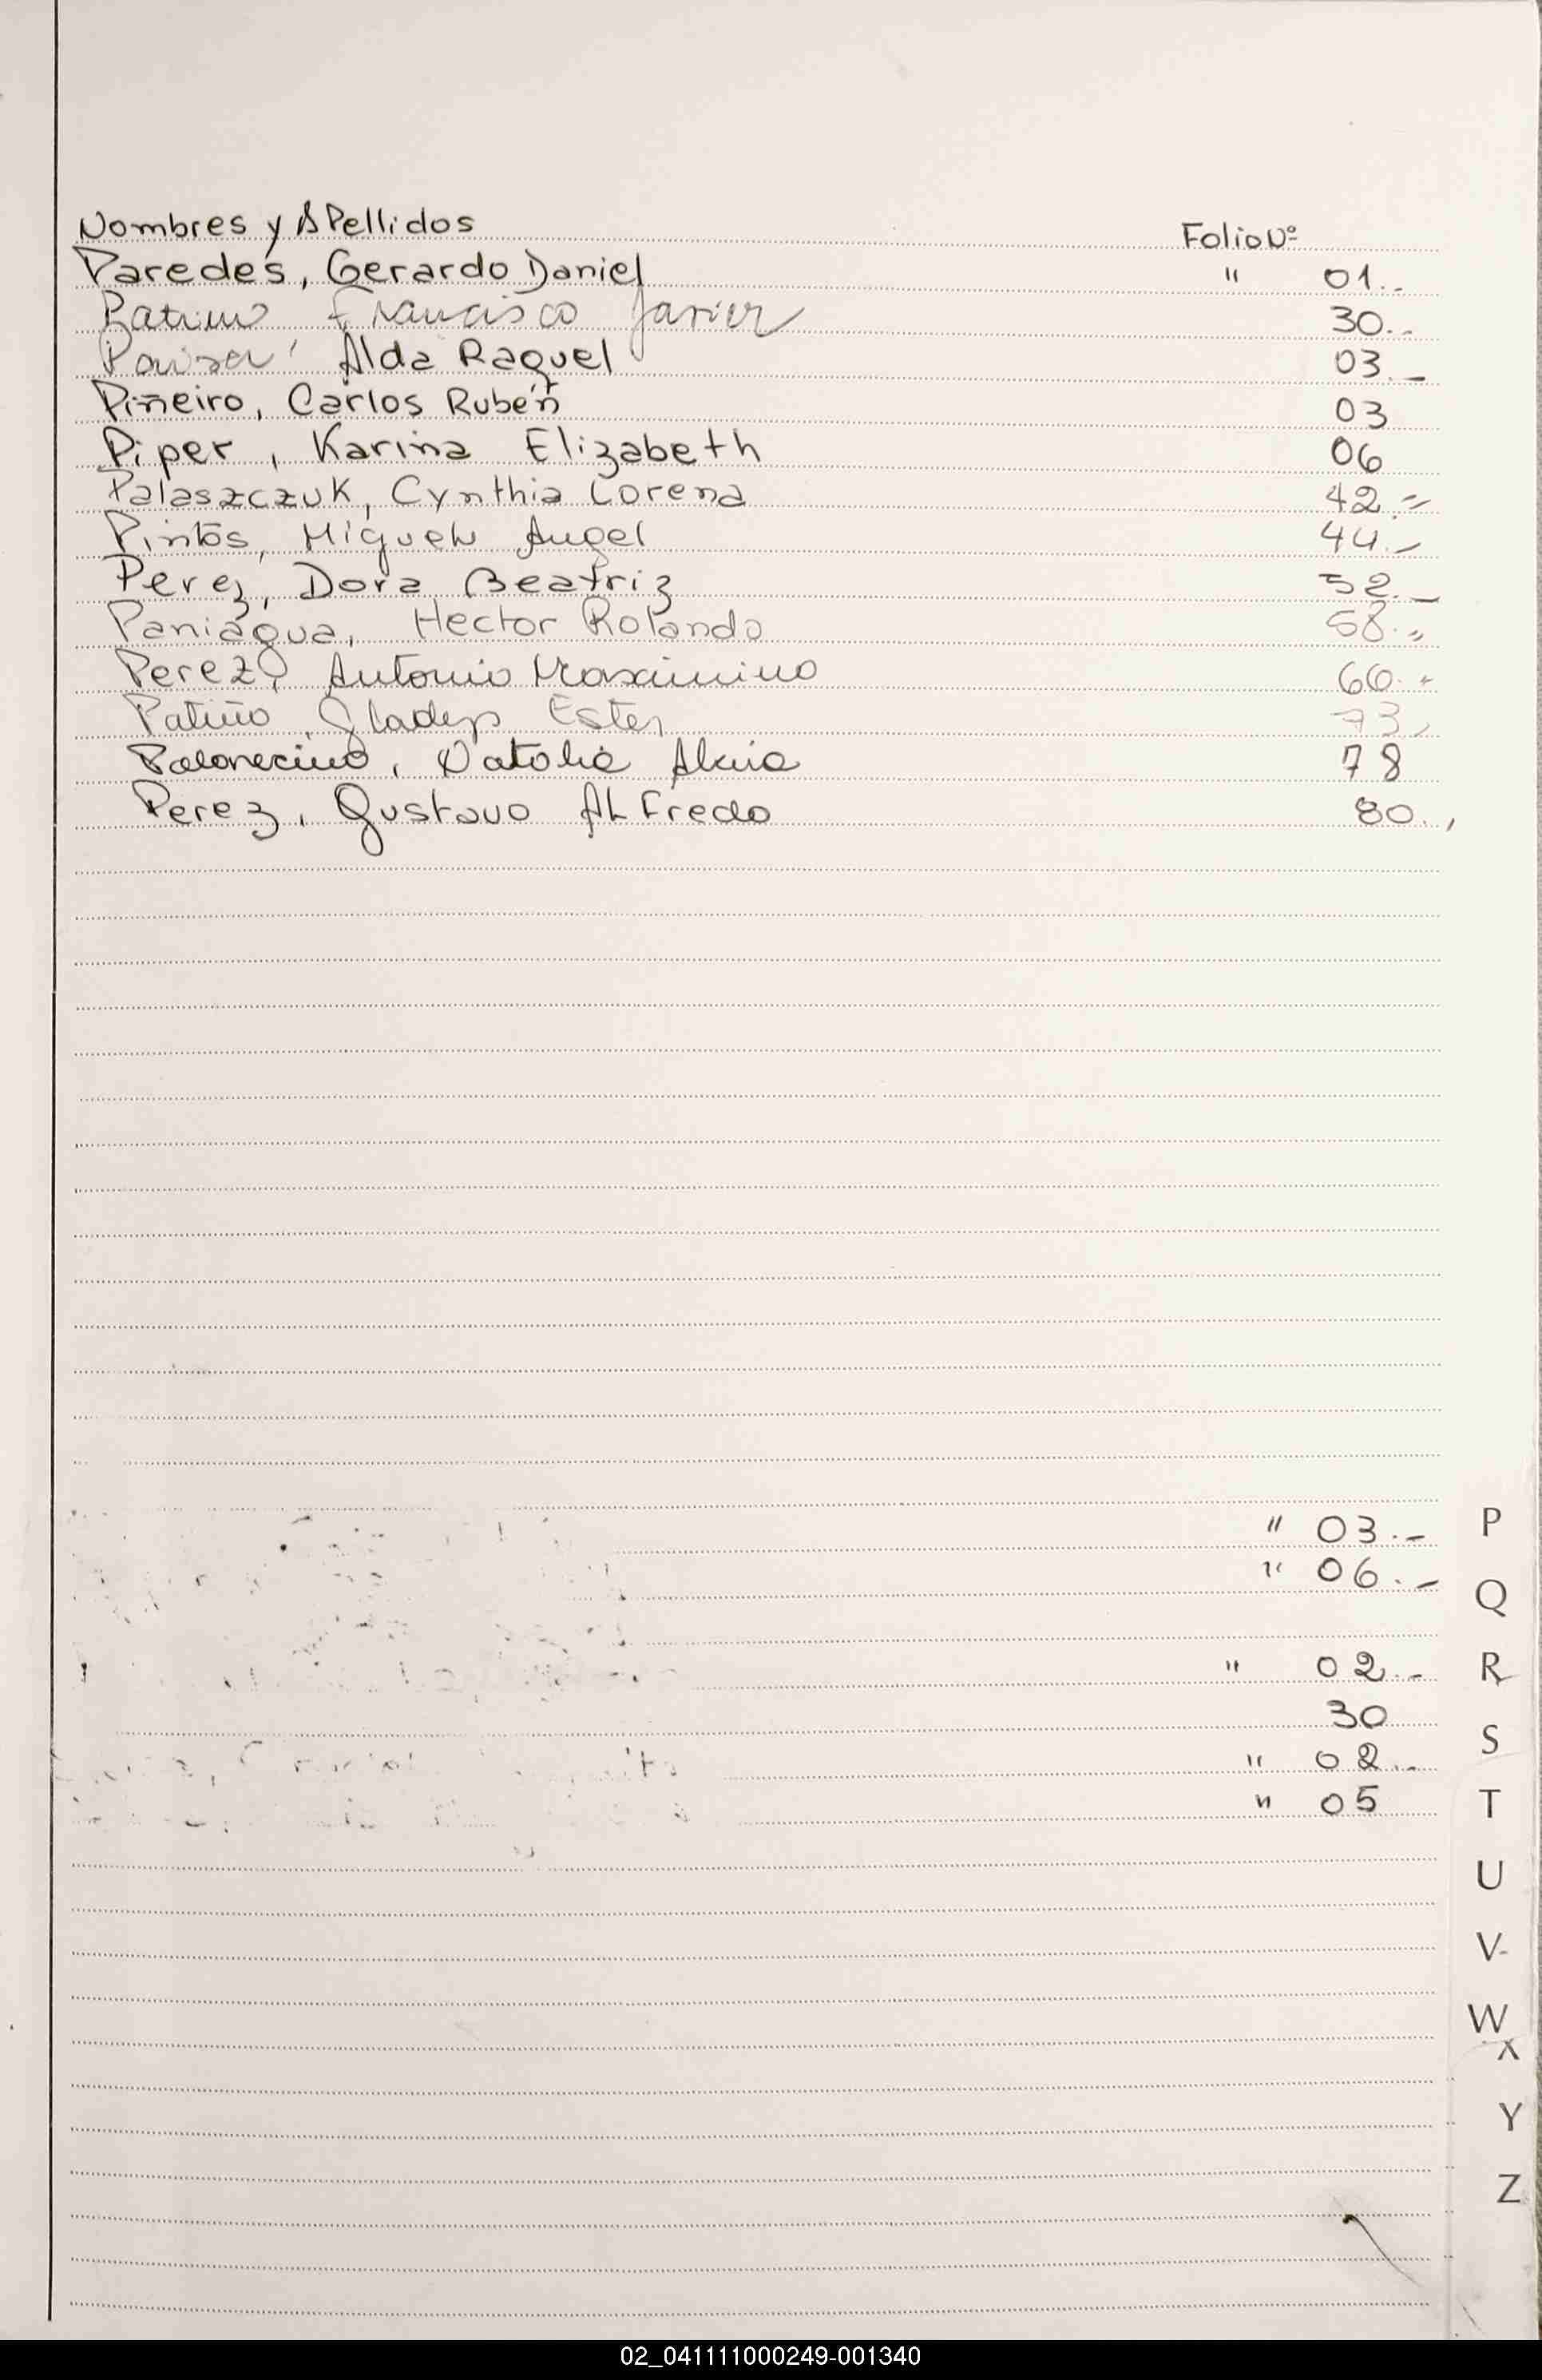 Nombres y APellidos Folio Nº
Paredes, Gerardo Daniel " 01..
Francisco Javier 30..
Alda Raquel 03.-
Piñeiro, Carlos Rubén 03
Piper, Karina Elizabeth 06
Palaszczuk, Cynthia Lorena 42.=
Pintos, Miguel Angel 44.-
Perez, Dora Beatriz 52.-
Paniagua, Hector Rolando 58.,,
Perez, Antonio Maximino 60.-
Patiño, Gladys Ester 73,
Natalia Alicia 78
Perez, Gustavo ALFredo 80.,
" 03.-
" 06.-
" 02.-
30
" 02..
" 05
P
Q
R
S
T
U
V
W
X
Y
Z
02_041111000249-001340